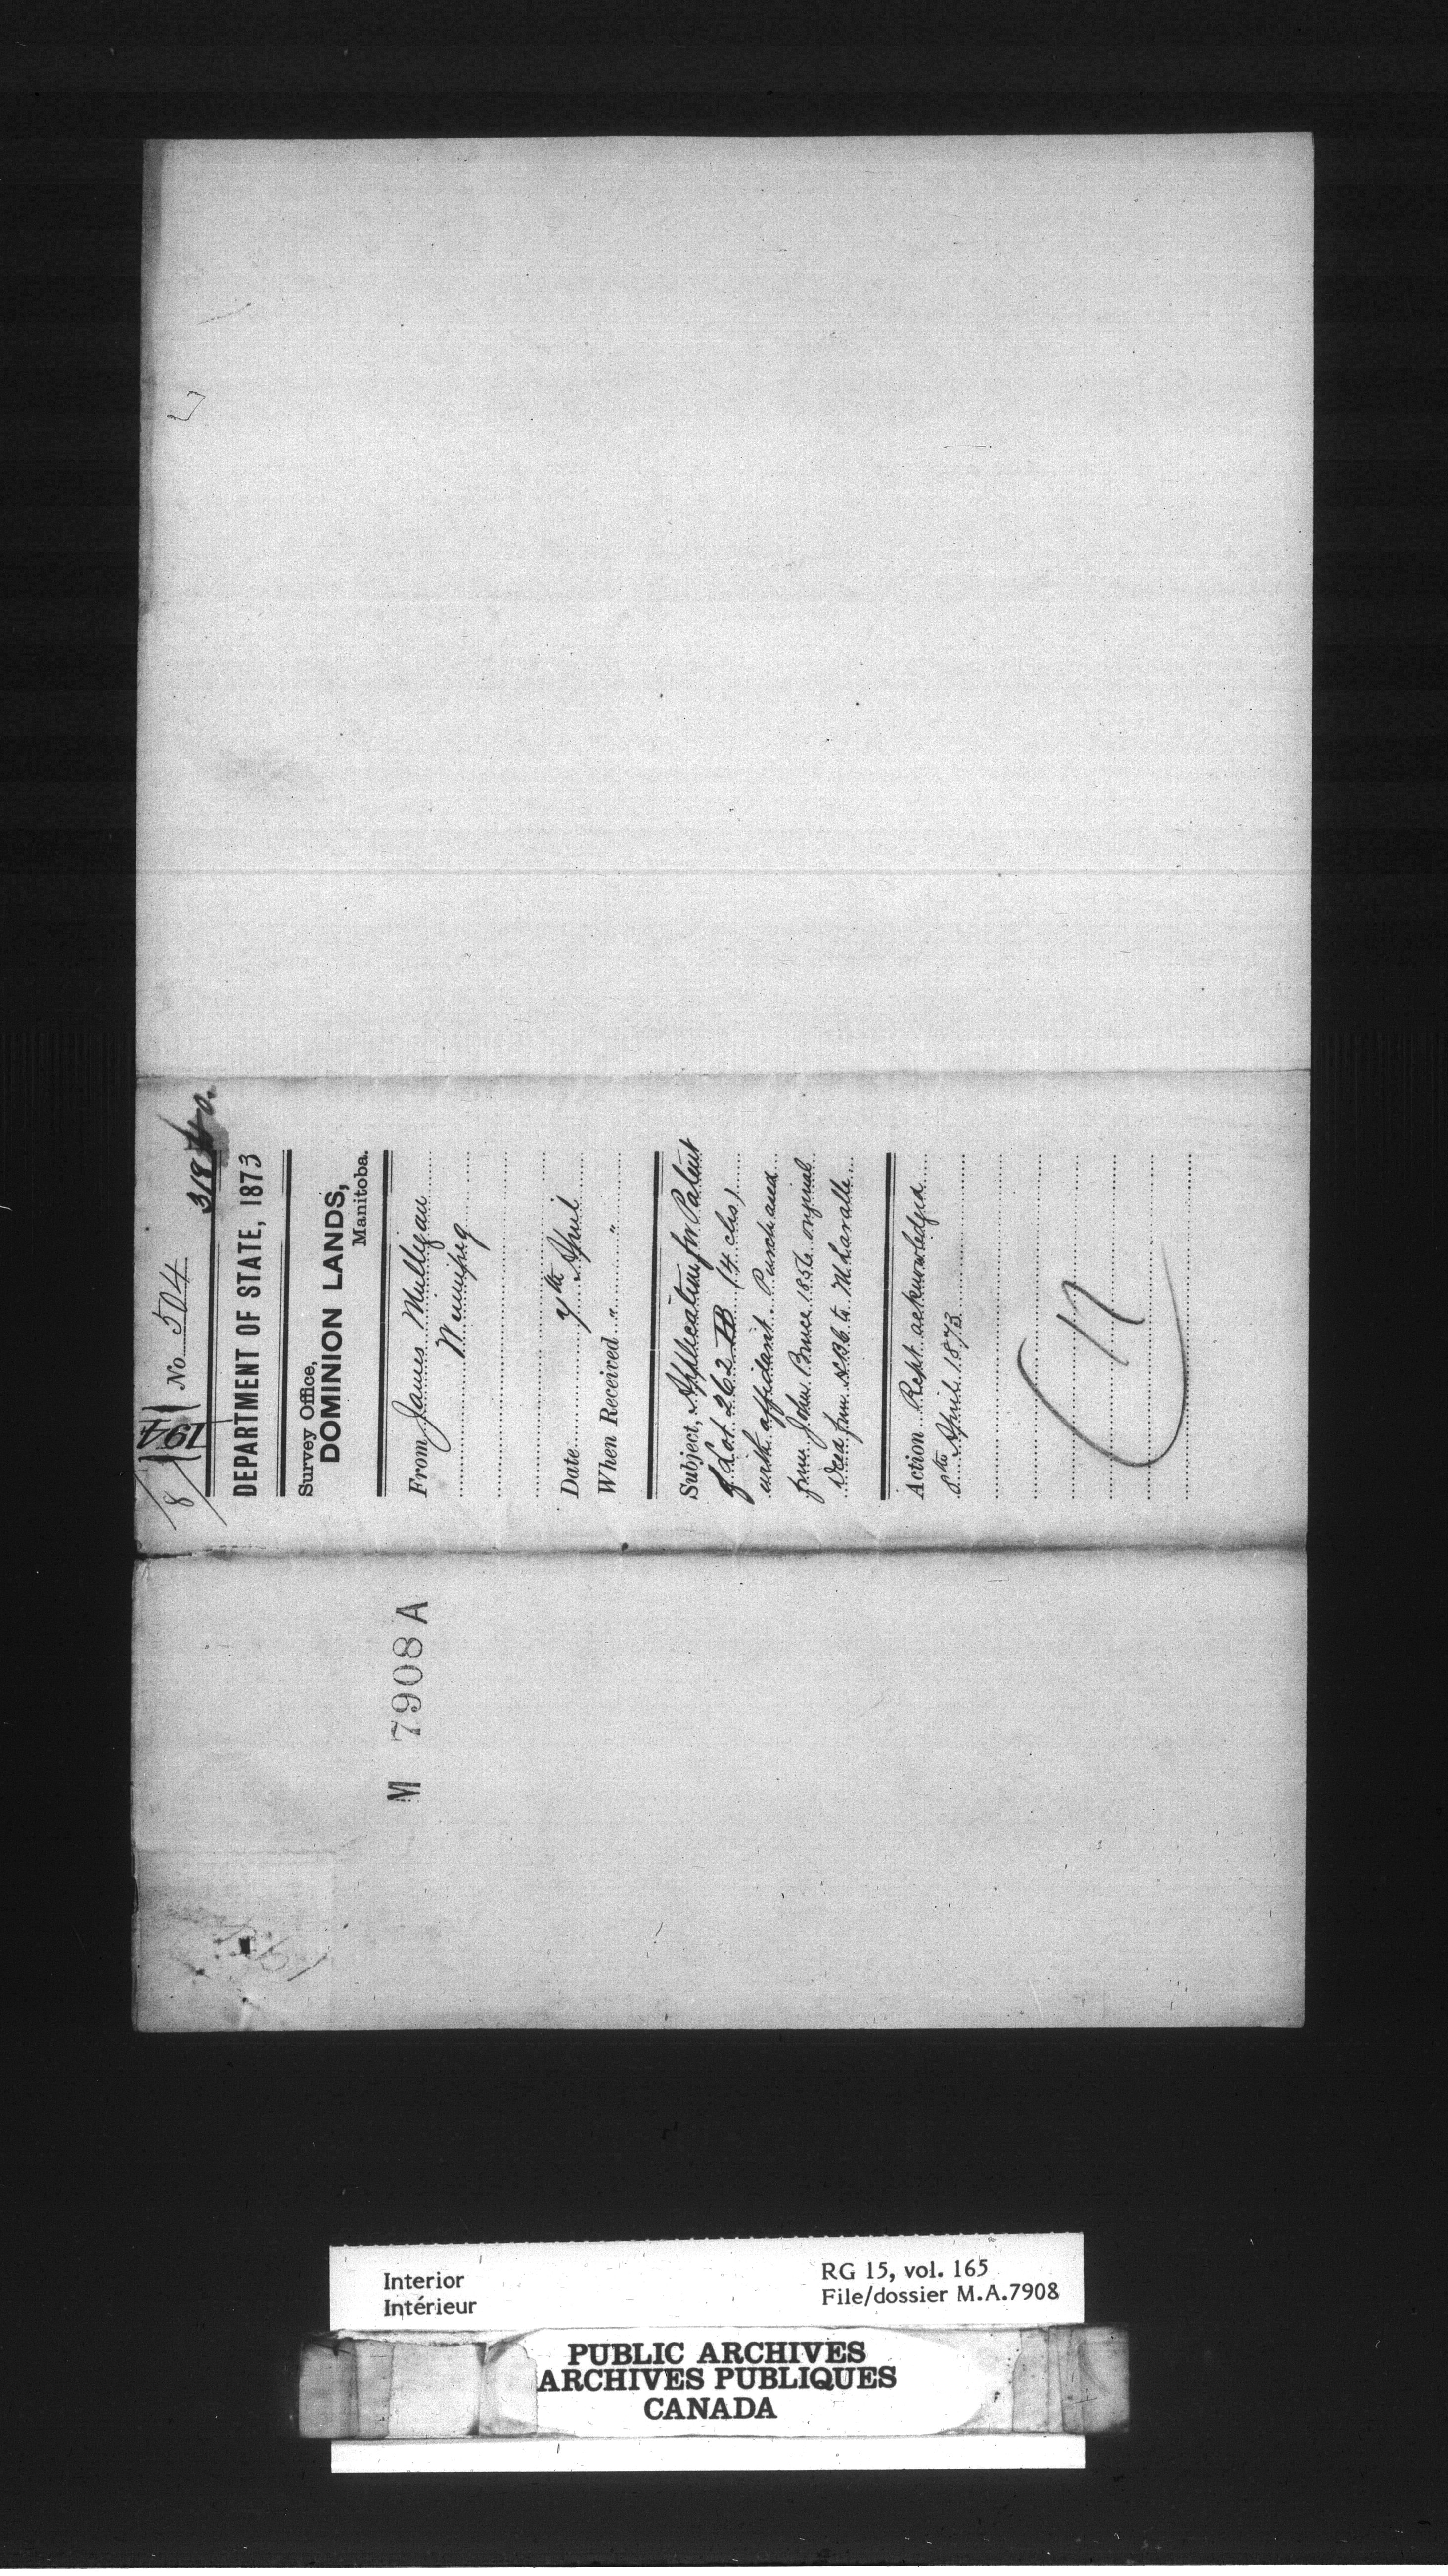 8/194 No 504 318
DEPARTMENT OF STATE, 1873
Survey Office,
DOMINION LANDS,
Manitoba.
From James Mulligan
Winnipeg
Date 7th April
When Received " "
Subject, Application for Patent
of Lot 262 (4 chs)
with affidavit. Purchased
from John Bruce 1856 original
Deed from H.B.C. to M. Lavalle
Action Rcpt acknowledged
8th April 1873
M 7908 A
Interior
Intérieur
RG 15, vol. 165
File/dossier M.A.7908
PUBLIC ARCHIVES
ARCHIVES PUBLIQUES
CANADA